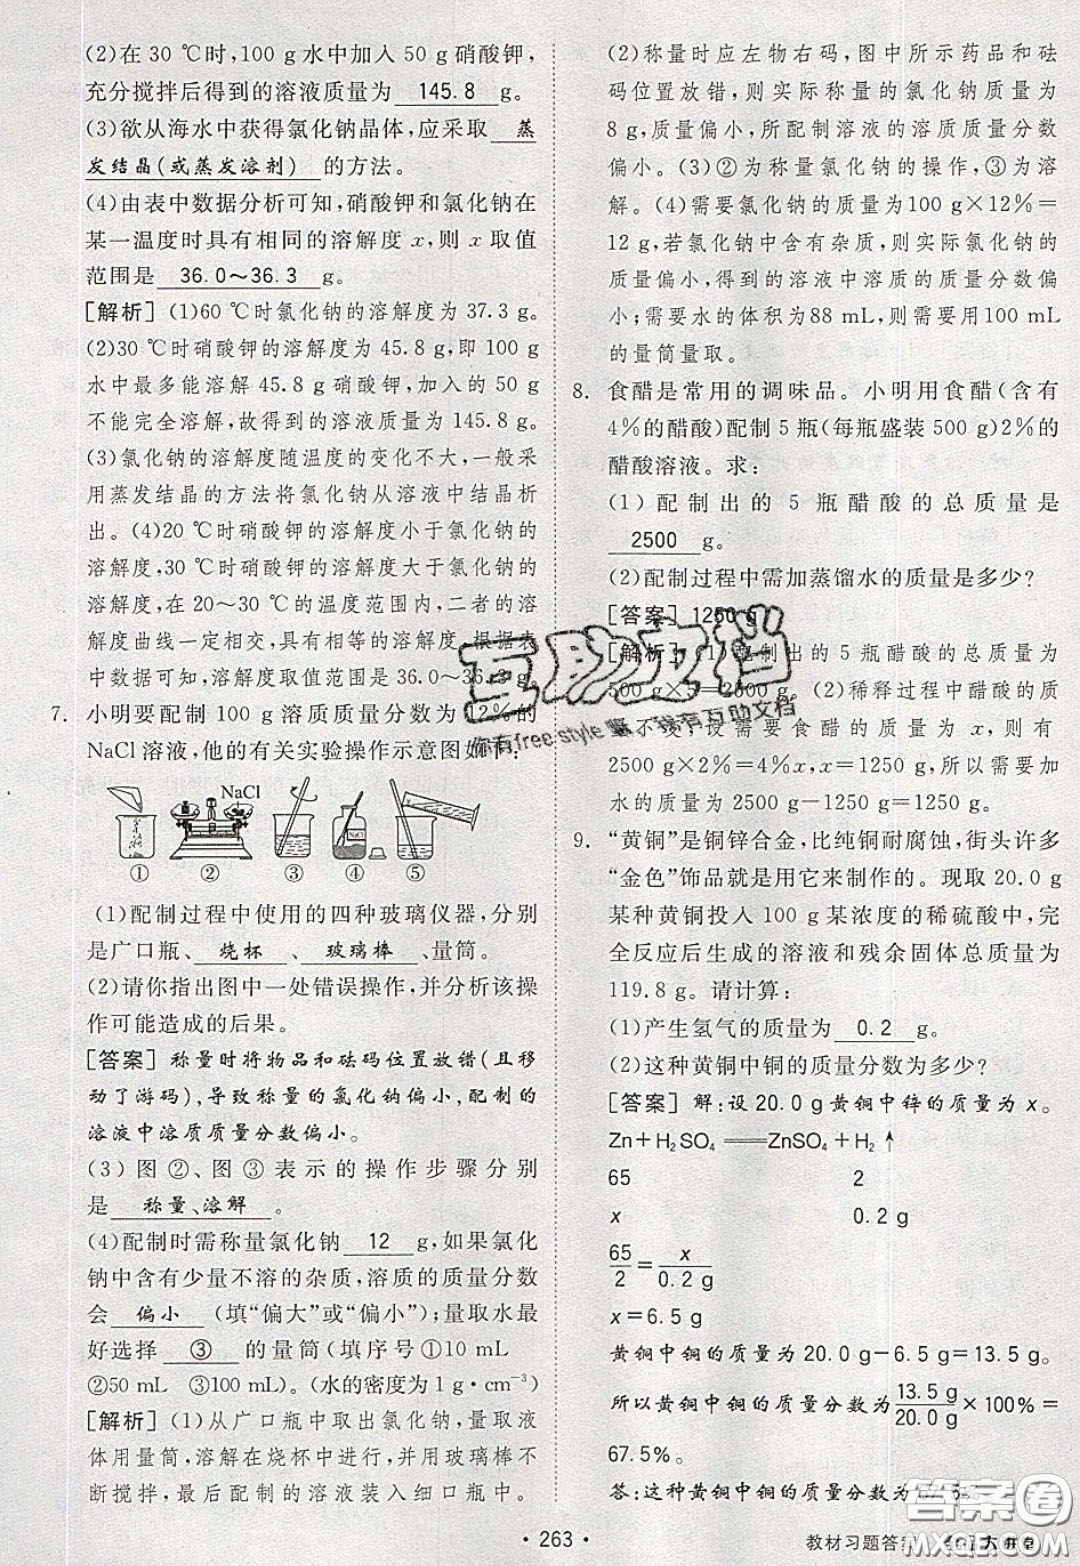 (2)在30 ℃时,100 g水中加入50 g硝酸钾,
充分搅拌后得到的溶液质量为 145.8 g。
(3)欲从海水中获得氯化钠晶体,应采取 蒸
发结晶(或蒸发溶剂) 的方法。
(4)由表中数据分析可知,硝酸钾和氯化钠在
某一温度时具有相同的溶解度 x,则 x 取值
范围是 36.0～36.3 g。
[解析](1)60 ℃时氯化钠的溶解度为37.3 g。
(2)30 ℃时硝酸钾的溶解度为45.8 g,即100 g
水中最多能溶解45.8 g硝酸钾,加入的50 g
不能完全溶解,故得到的溶液质量为145.8 g。
(3)氯化钠的溶解度随温度的变化不大,一般采
用蒸发结晶的方法将氯化钠从溶液中结晶析
出。(4)20 ℃时硝酸钾的溶解度小于氯化钠的
溶解度,30 ℃时硝酸钾的溶解度大于氯化钠的
溶解度,在20～30 ℃的温度范围内,二者的溶
解度曲线一定相交,具有相等的溶解度,根据表
中数据可知,溶解度取值范围是36.0～36.3 g。
7. 小明要配制100 g溶质质量分数为12%的
NaCl溶液,他的有关实验操作示意图如下:
NaCl
NaCl
① ② ③ ④ ⑤
(1)配制过程中使用的四种玻璃仪器,分别
是广口瓶、 烧杯 、 玻璃棒 、量筒。
(2)请你指出图中一处错误操作,并分析该操
作可能造成的后果。
[答案] 称量时将物品和砝码位置放错(且移
动了游码),导致称量的氯化钠偏小,配制的
溶液中溶质质量分数偏小。
(3)图②、图③表示的操作步骤分别
是 称量、溶解 。
(4)配制时需称量氯化钠 12 g,如果氯化
钠中含有少量不溶的杂质,溶质的质量分数
会 偏小 (填“偏大”或“偏小”);量取水最
好选择 ③ 的量筒(填序号①10 mL
②50 mL ③100 mL)。(水的密度为1 g·cm⁻³)
[解析](1)从广口瓶中取出氯化钠,量取液
体用量筒,溶解在烧杯中进行,并用玻璃棒不
断搅拌,最后配制的溶液装入细口瓶中。
(2)称量时应左物右码,图中所示药品和砝
码位置放错,则实际称量的氯化钠质量为
8 g,质量偏小,所配制溶液的溶质质量分数
偏小。(3)②为称量氯化钠的操作,③为溶
解。(4)需要氯化钠的质量为100 g×12%=
12 g,若氯化钠中含有杂质,则实际氯化钠的
质量偏小,得到的溶液中溶质的质量分数偏
小;需要水的体积为88 mL,需要用100 mL
的量筒量取。
8. 食醋是常用的调味品。小明用食醋(含有
4%的醋酸)配制5瓶(每瓶盛装500 g)2%的
醋酸溶液。求:
(1)配制出的5瓶醋酸的总质量是
2500 g。
(2)配制过程中需加蒸馏水的质量是多少?
[答案] 1250 g
[解析](1)配制出的5瓶醋酸的总质量为
500 g×5=2500 g。(2)稀释过程中醋酸的质
量不变,设需要食醋的质量为x,则有
2500 g×2%=4%x,x=1250 g,所以需要加
水的质量为2500 g-1250 g=1250 g。
9. “黄铜”是铜锌合金,比纯铜耐腐蚀,街头许多
“金色”饰品就是用它来制作的。现取20.0 g
某种黄铜投入100 g某浓度的稀硫酸中,完
全反应后生成的溶液和残余固体总质量为
119.8 g。请计算:
(1)产生氢气的质量为 0.2 g。
(2)这种黄铜中铜的质量分数为多少?
[答案] 解:设20.0 g黄铜中锌的质量为 x。
Zn+H₂SO₄══ZnSO₄+H₂↑
65 2
x 0.2 g
65/2=x/0.2 g
x=6.5 g
黄铜中铜的质量为20.0 g-6.5 g=13.5 g。
所以黄铜中铜的质量分数为13.5 g/20.0 g×100%=
67.5%。
答:这种黄铜中铜的质量分数为67.5%。
互助文档
你有free style嘛,我有互助文档
·263·
教材习题答案
答案圈
MXQE.COM